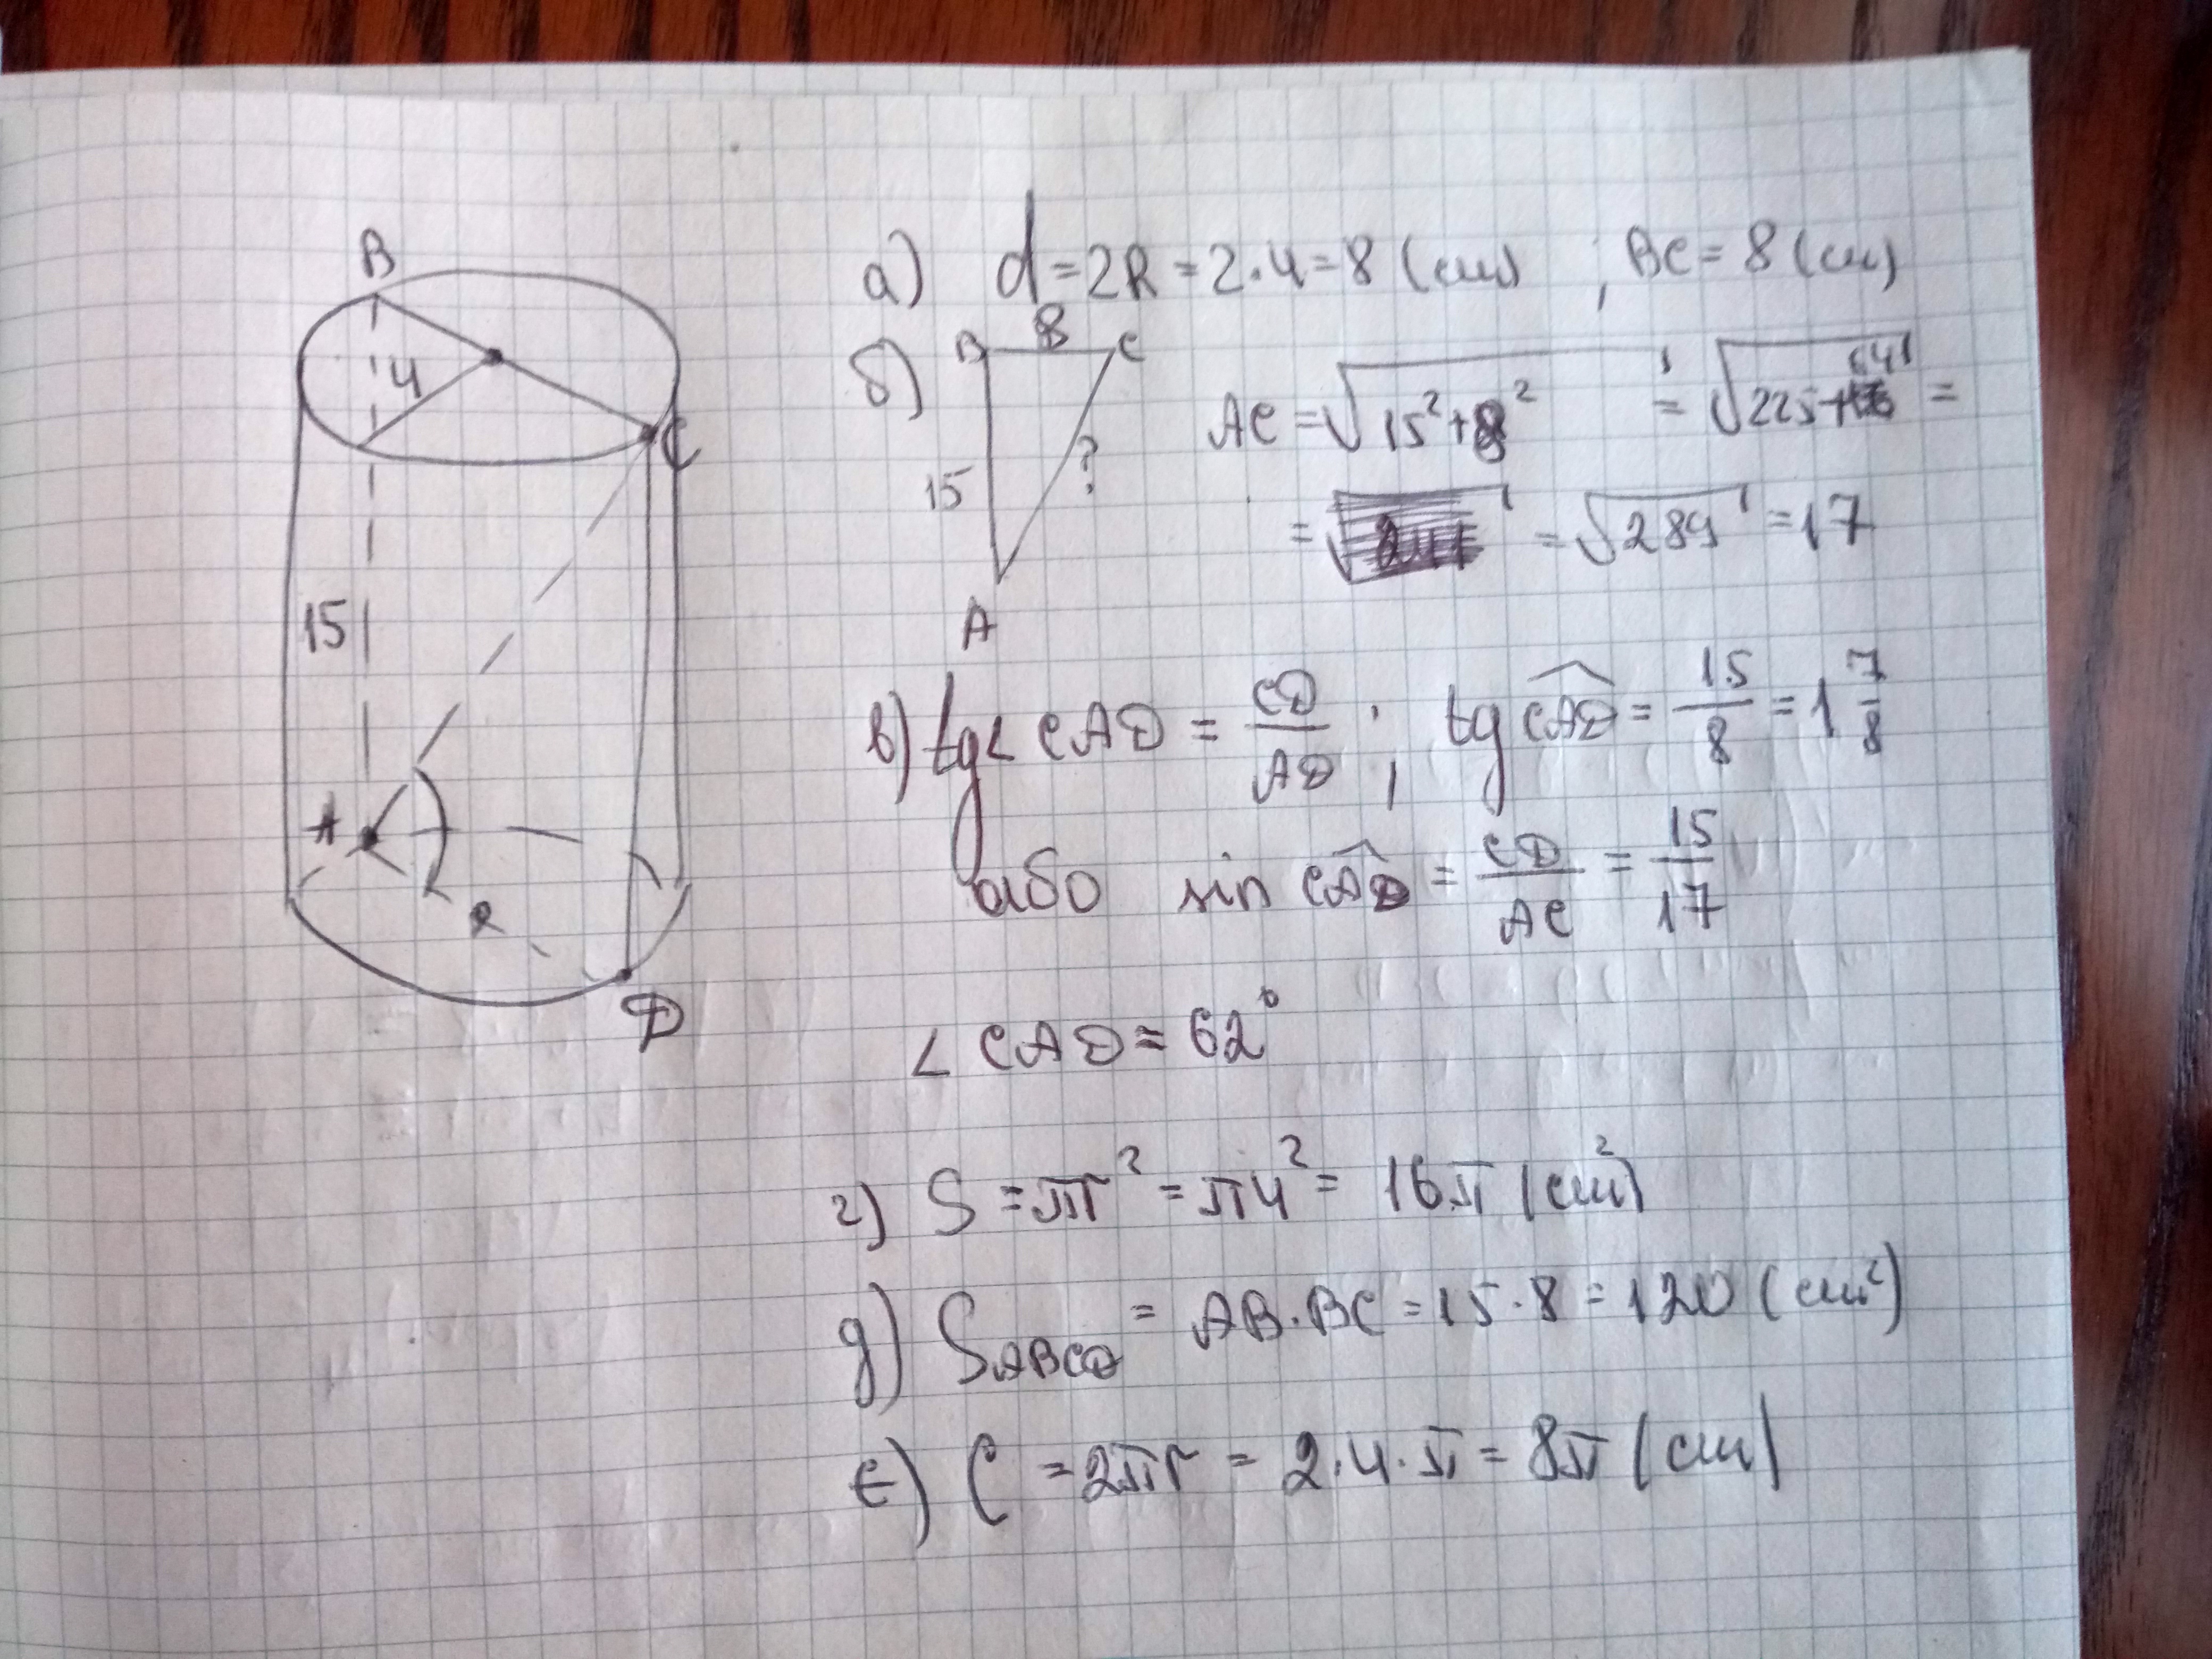 B
4
C
15
A
R
D
а) d = 2R = 2·4 = 8 (см) , BC = 8 (см)
б) B 8 C
15 ?
A
AC = √15² + 8² = √225+64 =
= = √289 = 17
в) tg∠CAD = CD/AD ; tg CAD = 15/8 = 1 7/8
або sin CAD = CD/AC = 15/17
∠CAD ≈ 62°
г) S = πr² = π4² = 16π (см²)
д) SABCD = AB·BC = 15·8 = 120 (см²)
е) C = 2πr = 2·4·π = 8π (см)